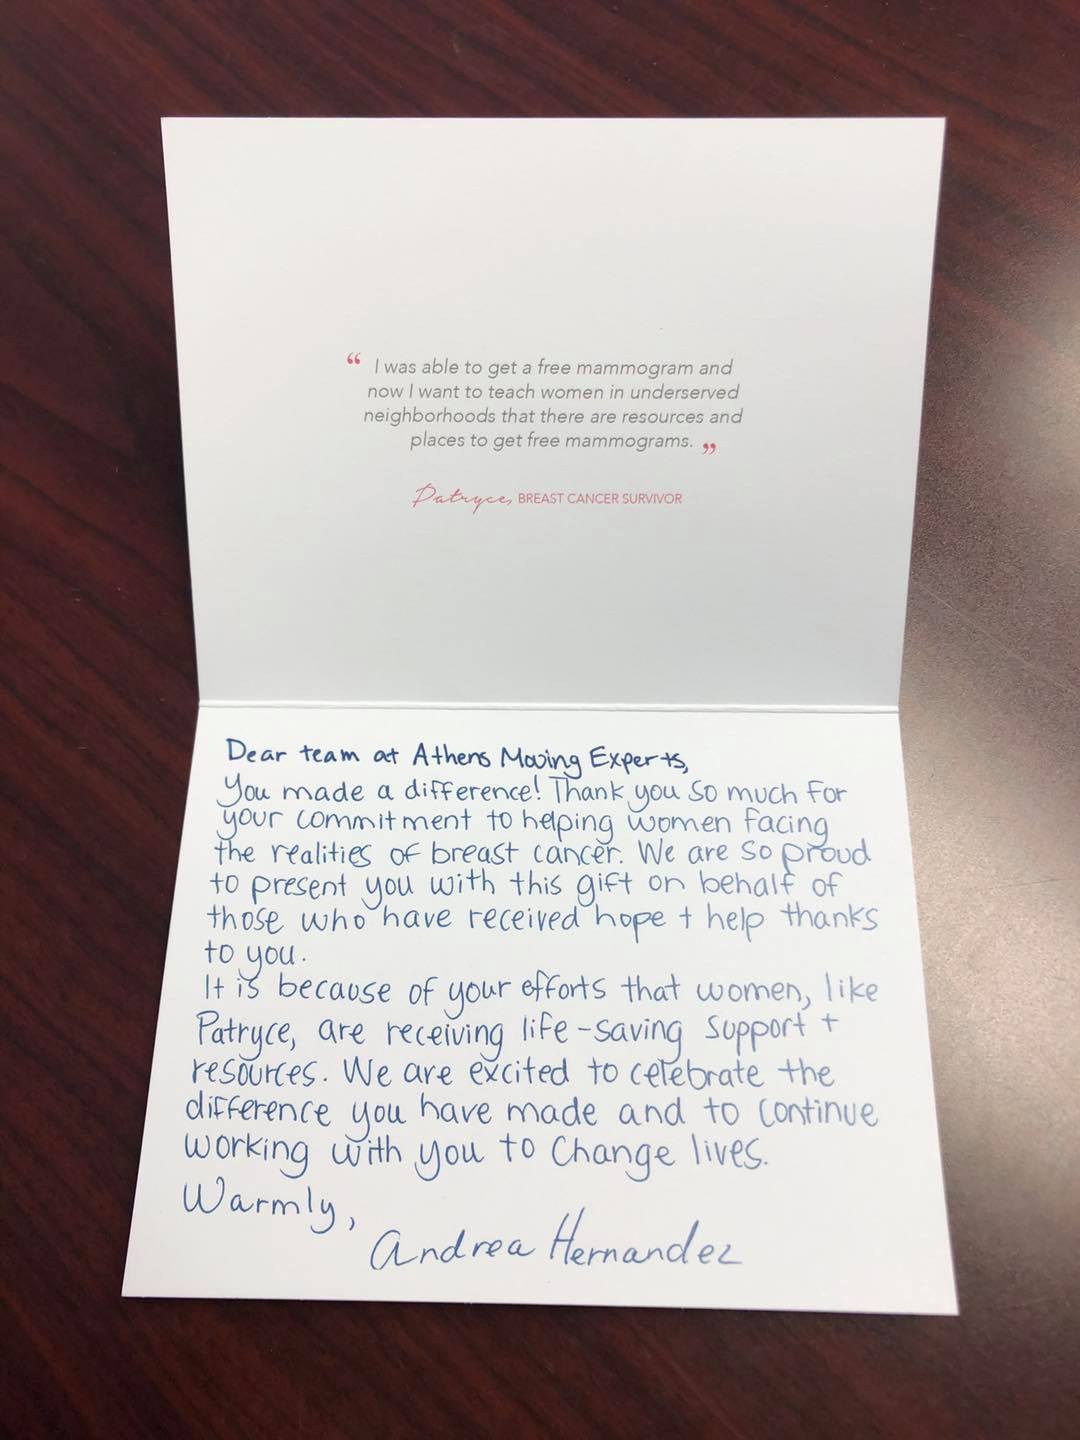 “ I was able to get a free mammogram and
now I want to teach women in underserved
neighborhoods that there are resources and
places to get free mammograms. ”
Patryce, BREAST CANCER SURVIVOR
Dear team at Athens Moving Experts,
You made a difference! Thank you so much for
your commitment to helping women facing
the realities of breast cancer. We are so proud
to present you with this gift on behalf of
those who have received hope + help thanks
to you.
It is because of your efforts that women, like
Patryce, are receiving life-saving support +
resources. We are excited to celebrate the
difference you have made and to continue
working with you to change lives.
Warmly,
Andrea Hernandez